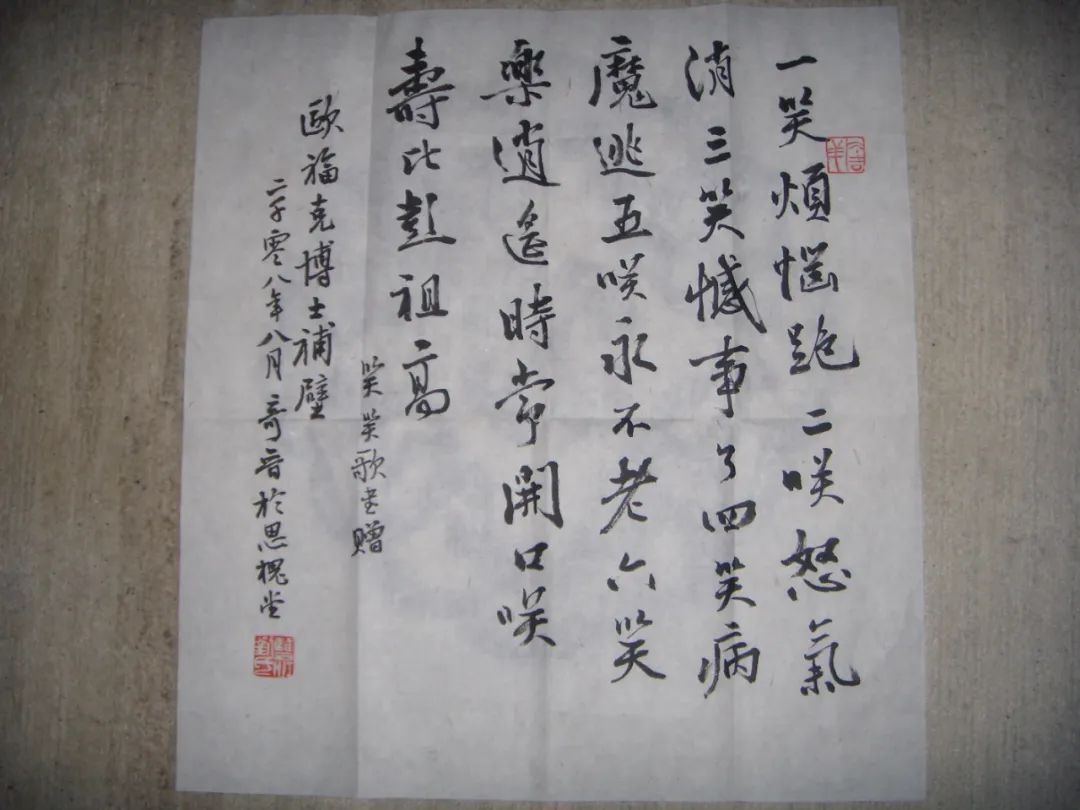 一笑煩惱跑二咲怒氣
消三笑憾事了四笑病
魔逃五咲永不老六笑
樂逍遙時常開口咲
壽比彭祖高
笑笑歌書赠
歐福克博士補壁
二千零八年八月奇音於思槐堂